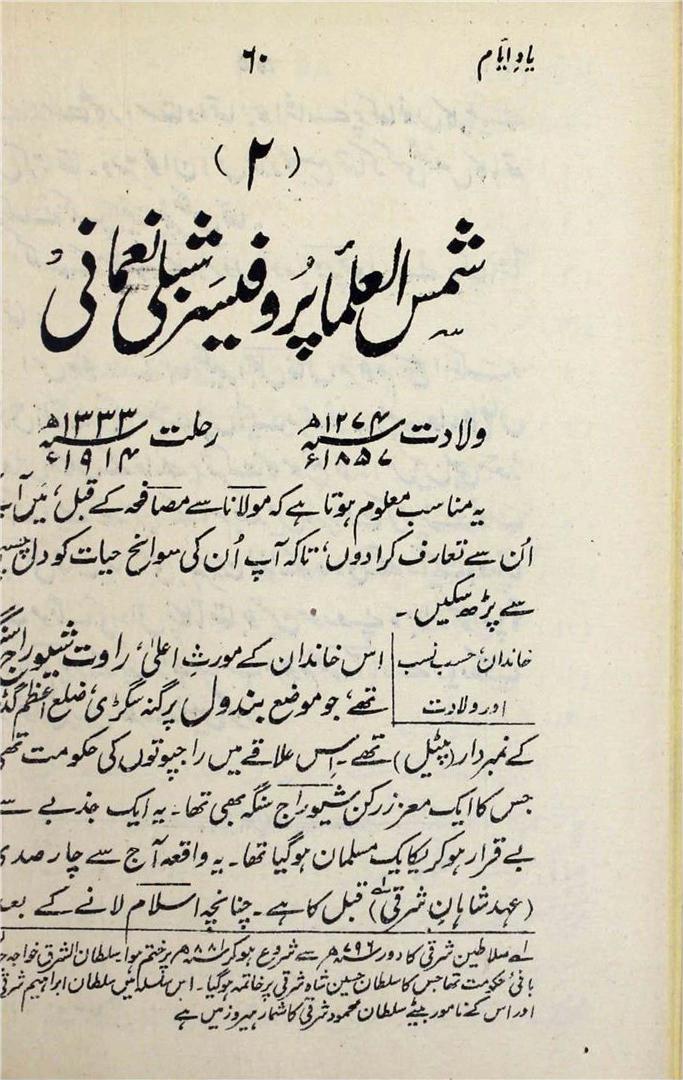 یادِ ایّام
۶۰
(۲)
شمس العلمأ پروفیسر شبلی نعمانی
ولادت ۱۲۷۴ھ رحلت ۱۳۳۳ھ
۱۸۵۷ء ۱۹۱۴ء
یہ مناسب معلوم ہوتا ہے کہ مولانا سے مصافحہ کے قبل، میں
اُن سے تعارف کرا دوں، تاکہ آپ اُن کی سوانح حیات کو دل
سے پڑھ سکیں۔
خاندان، حسب نسب
اور ولادت
اس خاندان کے مورثِ اعلیٰ، راوت شیوراج
تھے، جو موضع بندول پرگنہ سگڑی، ضلع اعظم
کے نمبردار (پٹیل) تھے۔ اِس علاقے میں راجپوتوں کی حکومت تھی
جس کا ایک معزز رکن شیوراج سنگہ بھی تھا۔ یہ ایک جذبے سے
بے قرار ہو کر یکایک مسلمان ہو گیا تھا۔ یہ واقعہ آج سے چار صدی
(عہد شاہانِ شرقی) قبل کا ہے۔ چنانچہ اسلام لانے کے بعد
لہ سلاطین شرقی کا دور ۷۹۶ھ سے شروع ہو کر ۸۸۱ھ پر ختم ہوا۔ سلطان الشرق خواجہ
بانیٔ حکومت تھا جس کا سلطان حسین شاہ شرقی پر خاتمہ ہو گیا۔ اس سلسلہ میں سلطان ابراہیم شرقی
اور اس کے نامور بیٹے سلطان محمود شرقی کا شمار ہیروز میں ہے